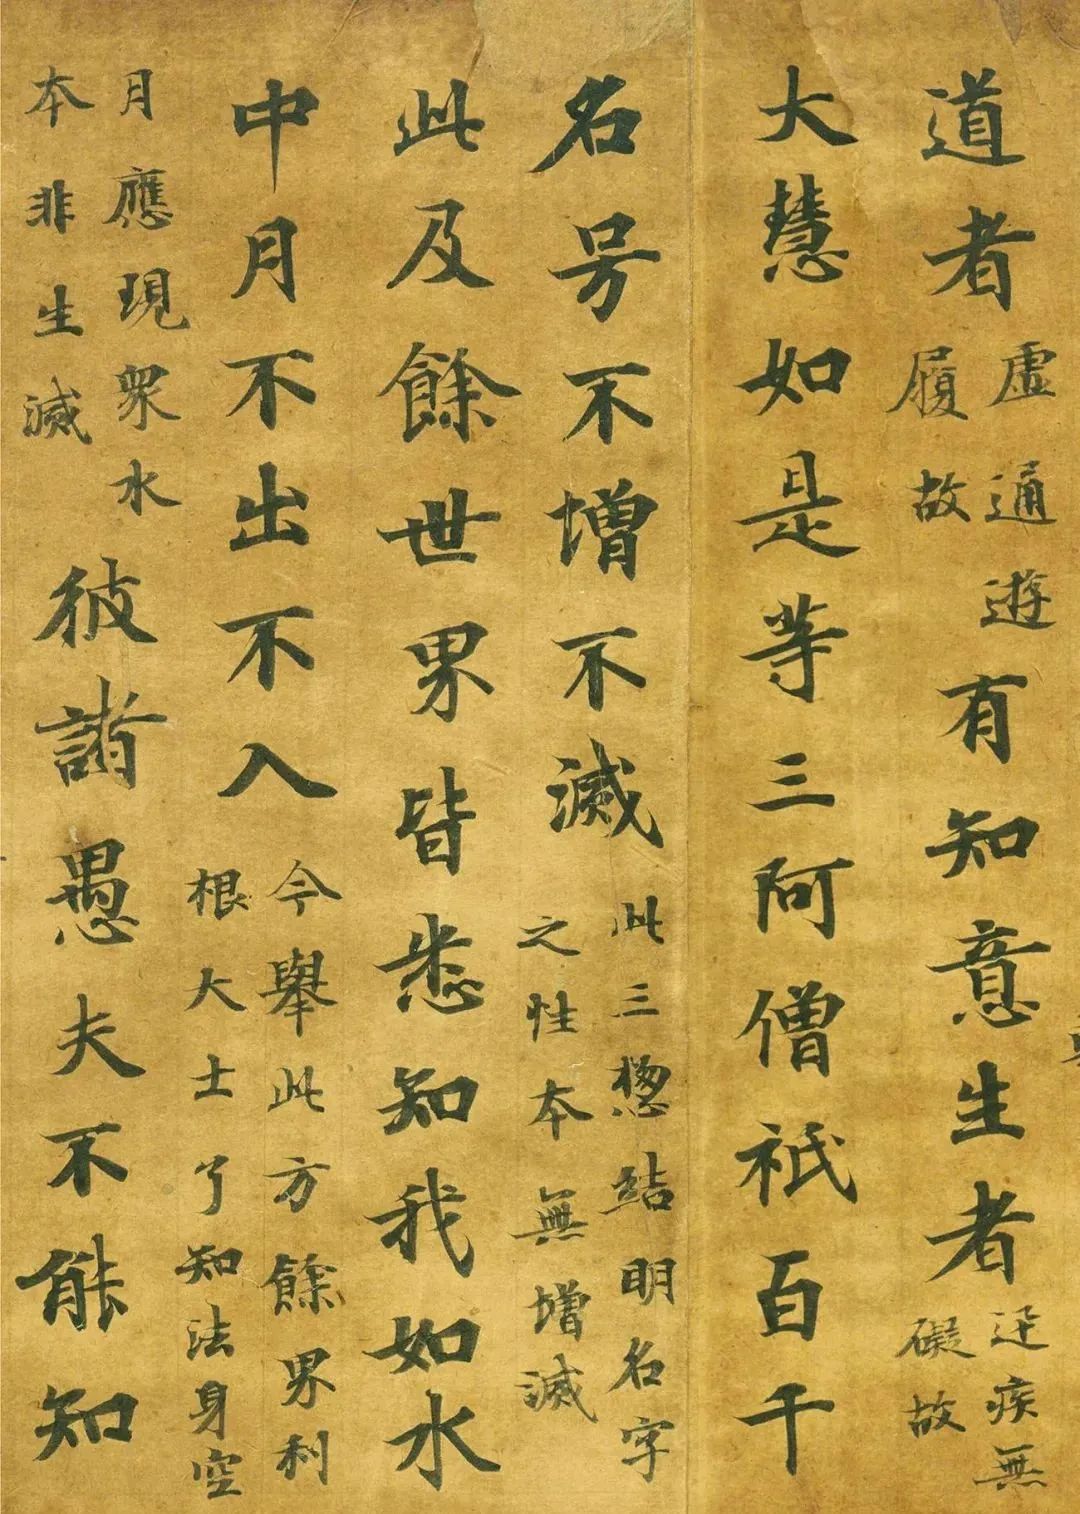 道者虛通遊履故有知意生者迅疾無礙故
大慧如是等三阿僧祇百千
名号不增不滅此三揔結明名字之性本無增減
此及餘世界皆悉知我如水
中月不出不入今舉此方餘界利根大士了知法身空
月應現衆水本非生滅彼諸愚夫不能知